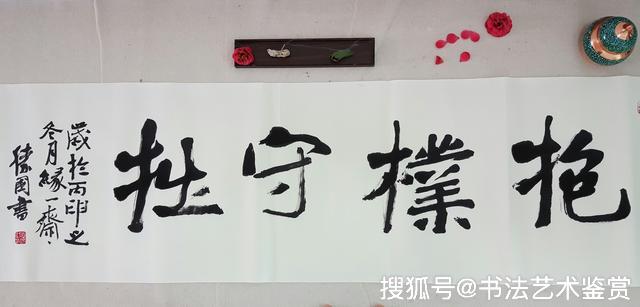 抱樸守拙
歲於丙申之
冬月緣一齋
國書
搜狐号@书法艺术鉴赏